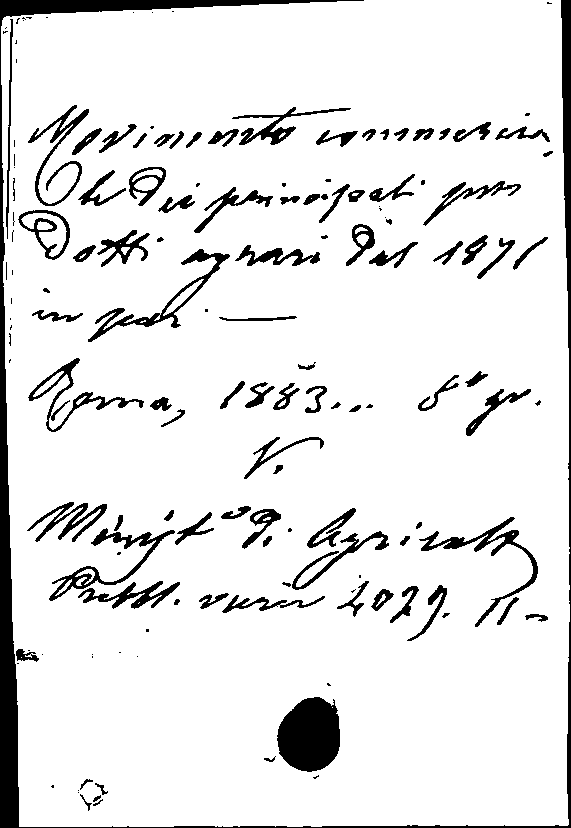 Movimento commercia-
le dei principali pro
dotti agrari dal 1871
in poi —
Roma, 1883... 8° gr.
V.
Minist° di Agricolt
Pubbl. varie 2029. 11-